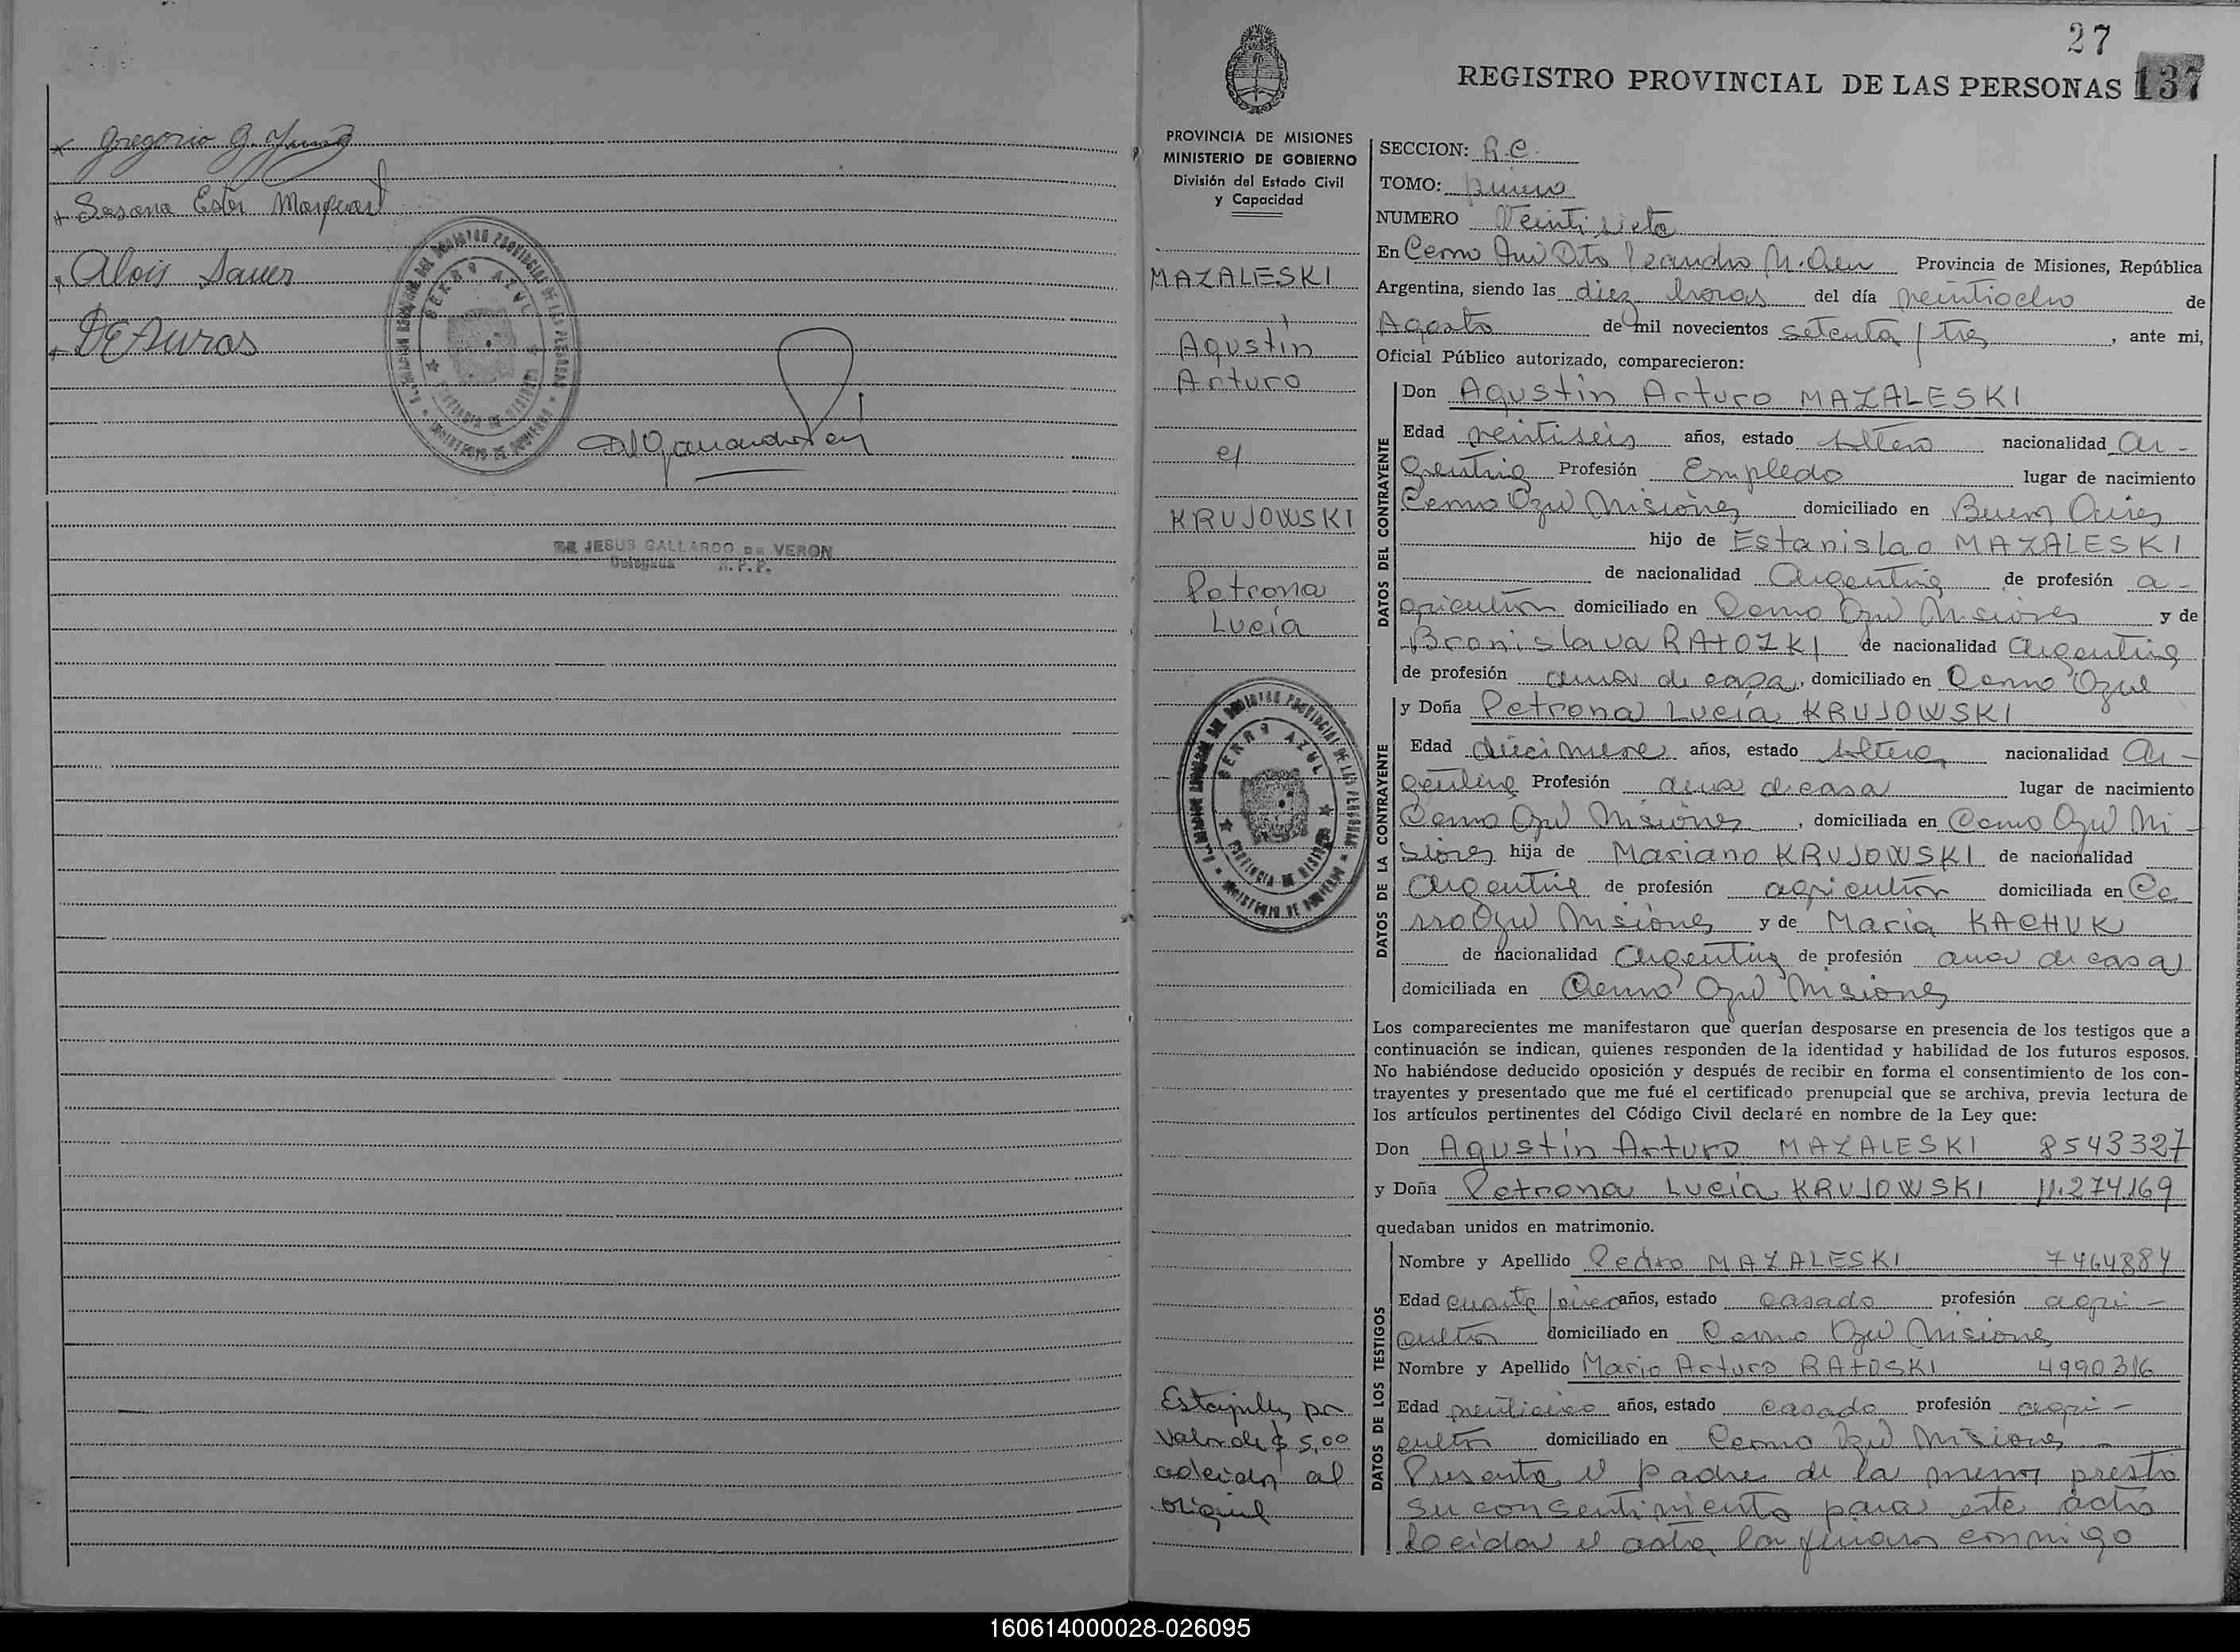 Gregorio G.
Susana Ester Marquart
Alois Sauer
DE JESUS GALLARDO DE VERON
Delegada R.P.P.
27
REGISTRO PROVINCIAL DE LAS PERSONAS 137
PROVINCIA DE MISIONES
MINISTERIO DE GOBIERNO
División del Estado Civil
y Capacidad
MAZALESKI
Agustín
Arturo
c/
KRUJOWSKI
Petrona
Lucía
CERRO AZUL
Estampillas por
valor de $ 5,00
adheridas al
original
SECCION: R.C.
TOMO: primero
NUMERO Veintisiete
En Cerro Azul Dto Leandro N. Alem Provincia de Misiones, República
Argentina, siendo las diez horas del día veintiocho de
Agosto de mil novecientos setenta y tres, ante mi,
Oficial Público autorizado, comparecieron:
DATOS DEL CONTRAYENTE
Don Agustín Arturo MAZALESKI
Edad veintiseis años, estado soltero nacionalidad Ar-
gentina Profesión Empledo lugar de nacimiento
Cerro Azul Misiones domiciliado en Buenos Aires
hijo de Estanislao MAZALESKI
de nacionalidad Argentina de profesión a-
gricultor domiciliado en Cerro Azul Misiones y de
Bronislava RATOZKI de nacionalidad Argentina
de profesión ama de casa, domiciliado en Cerro Azul
DATOS DE LA CONTRAYENTE
y Doña Petrona Lucía KRUJOWSKI
Edad diecinueve años, estado soltera nacionalidad Ar-
gentina Profesión ama de casa lugar de nacimiento
Cerro Azul Misiones, domiciliada en Cerro Azul Mi-
siones hija de Mariano KRUJOWSKI de nacionalidad
Argentina de profesión agricultor domiciliada en Ce
rro Azul Misiones y de María KACHUK
de nacionalidad Argentina de profesión ama de casa
domiciliada en Cerro Azul Misiones
Los comparecientes me manifestaron que querían desposarse en presencia de los testigos que a
continuación se indican, quienes responden de la identidad y habilidad de los futuros esposos.
No habiéndose deducido oposición y después de recibir en forma el consentimiento de los con-
trayentes y presentado que me fué el certificado prenupcial que se archiva, previa lectura de
los artículos pertinentes del Código Civil declaré en nombre de la Ley que:
Don Agustín Arturo MAZALESKI 8543327
y Doña Petrona Lucía KRUJOWSKI 11.274.169
quedaban unidos en matrimonio.
DATOS DE LOS TESTIGOS
Nombre y Apellido Pedro MAZALESKI 7464884
Edad años, estado casado profesión agri-
cultor domiciliado en Cerro Azul Misiones
Nombre y Apellido Mario Arturo RATOSKI 4990316
Edad años, estado casado profesión agri-
cultor domiciliado en Cerro Azul Misiones
Presente el padre de la menor presta
su consentimiento para este acto
leida el acta, la firman conmigo
160614000028-026095